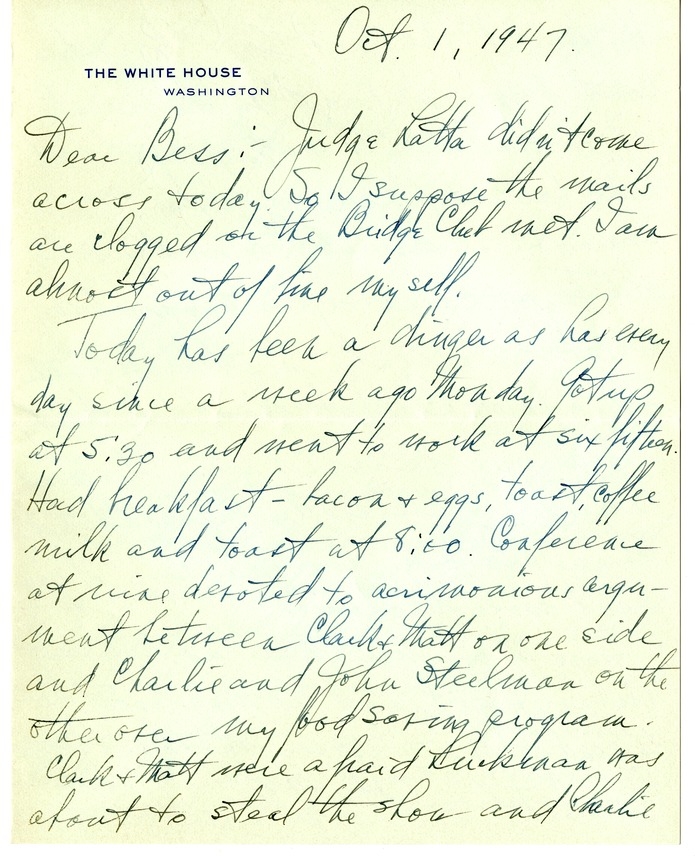 Oct. 1, 1947.
THE WHITE HOUSE
WASHINGTON
Dear Bess:- Judge Latta didn't come
across today. So I suppose the mails
are clogged or the Bridge Club met. I am
almost out of line myself.
Today has been a dinger as has every
day since a week ago Monday. Got up
at 5:30 and went to work at six fifteen.
Had breakfast - bacon & eggs, toast, coffee
milk and toast at 8:00. Conference
at nine devoted to acrimonious argu-
ment between Clark & Matt on one side
and Charlie and John Steelman on the
other over my food saving program.
Clark & Matt were afraid Luckman was
about to steal the show and Charlie